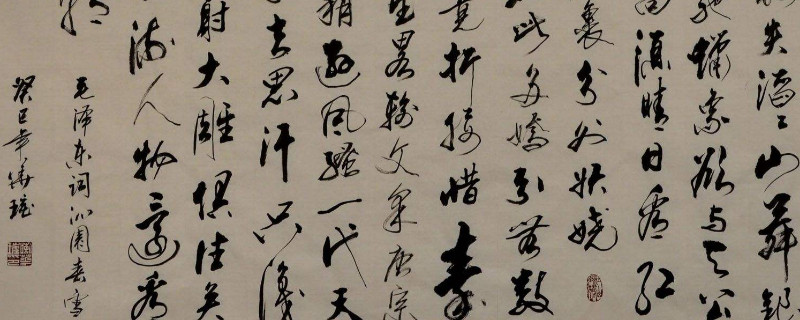 失滔〻山舞银
驰蜡象欲与天公
高须晴日看红
裹分外妖娆
此多娇引无数
竞折腰惜秦
略输文采唐宗
稍逊风骚一代天
吉思汗只识
射大雕俱往矣
流人物还看
朝
毛泽东词沁园春雪
癸巳年